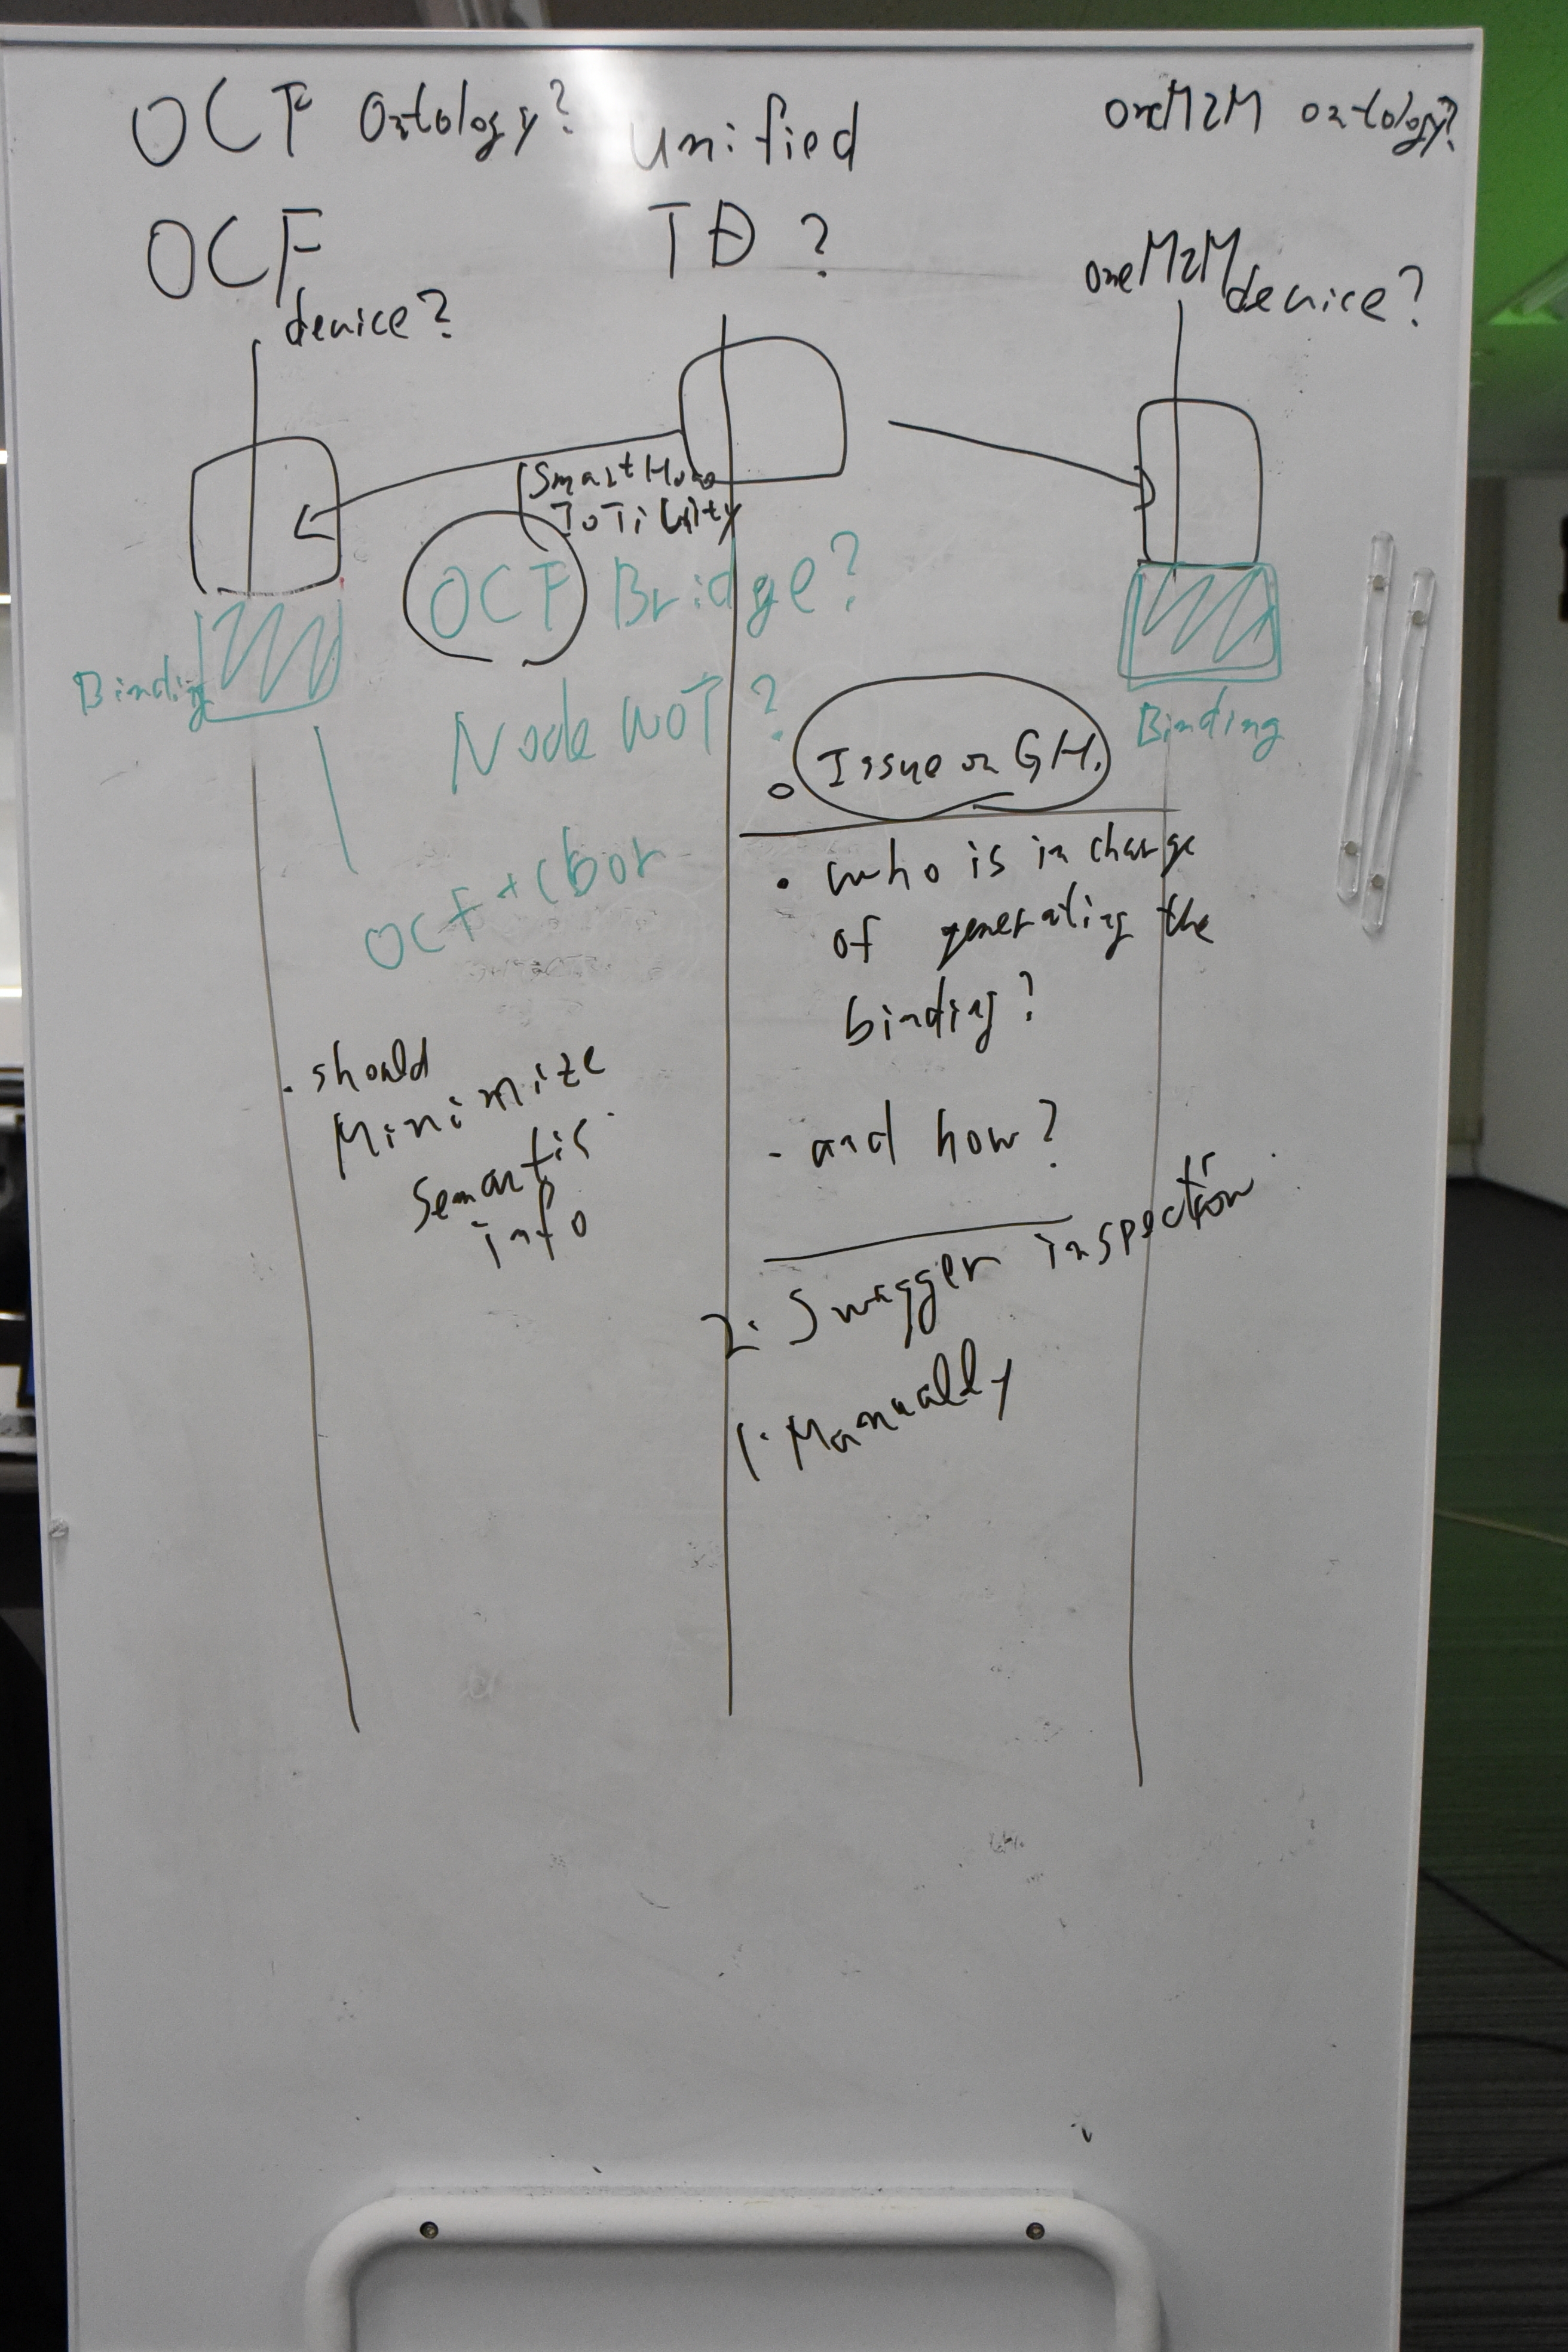 OCF Ontology?
unified
oneM2M ontology?
OCF
device?
TD ?
oneM2M
device?
Smart Home
IoTivity
OCF Bridge?
Binding
Node WoT ?
Binding
Issue on GH.
OCF + cbor
• who is in charge
of generating the
binding?
. should
Minimize
semantic
info
- and how?
2. Swagger inspection
1. Manually